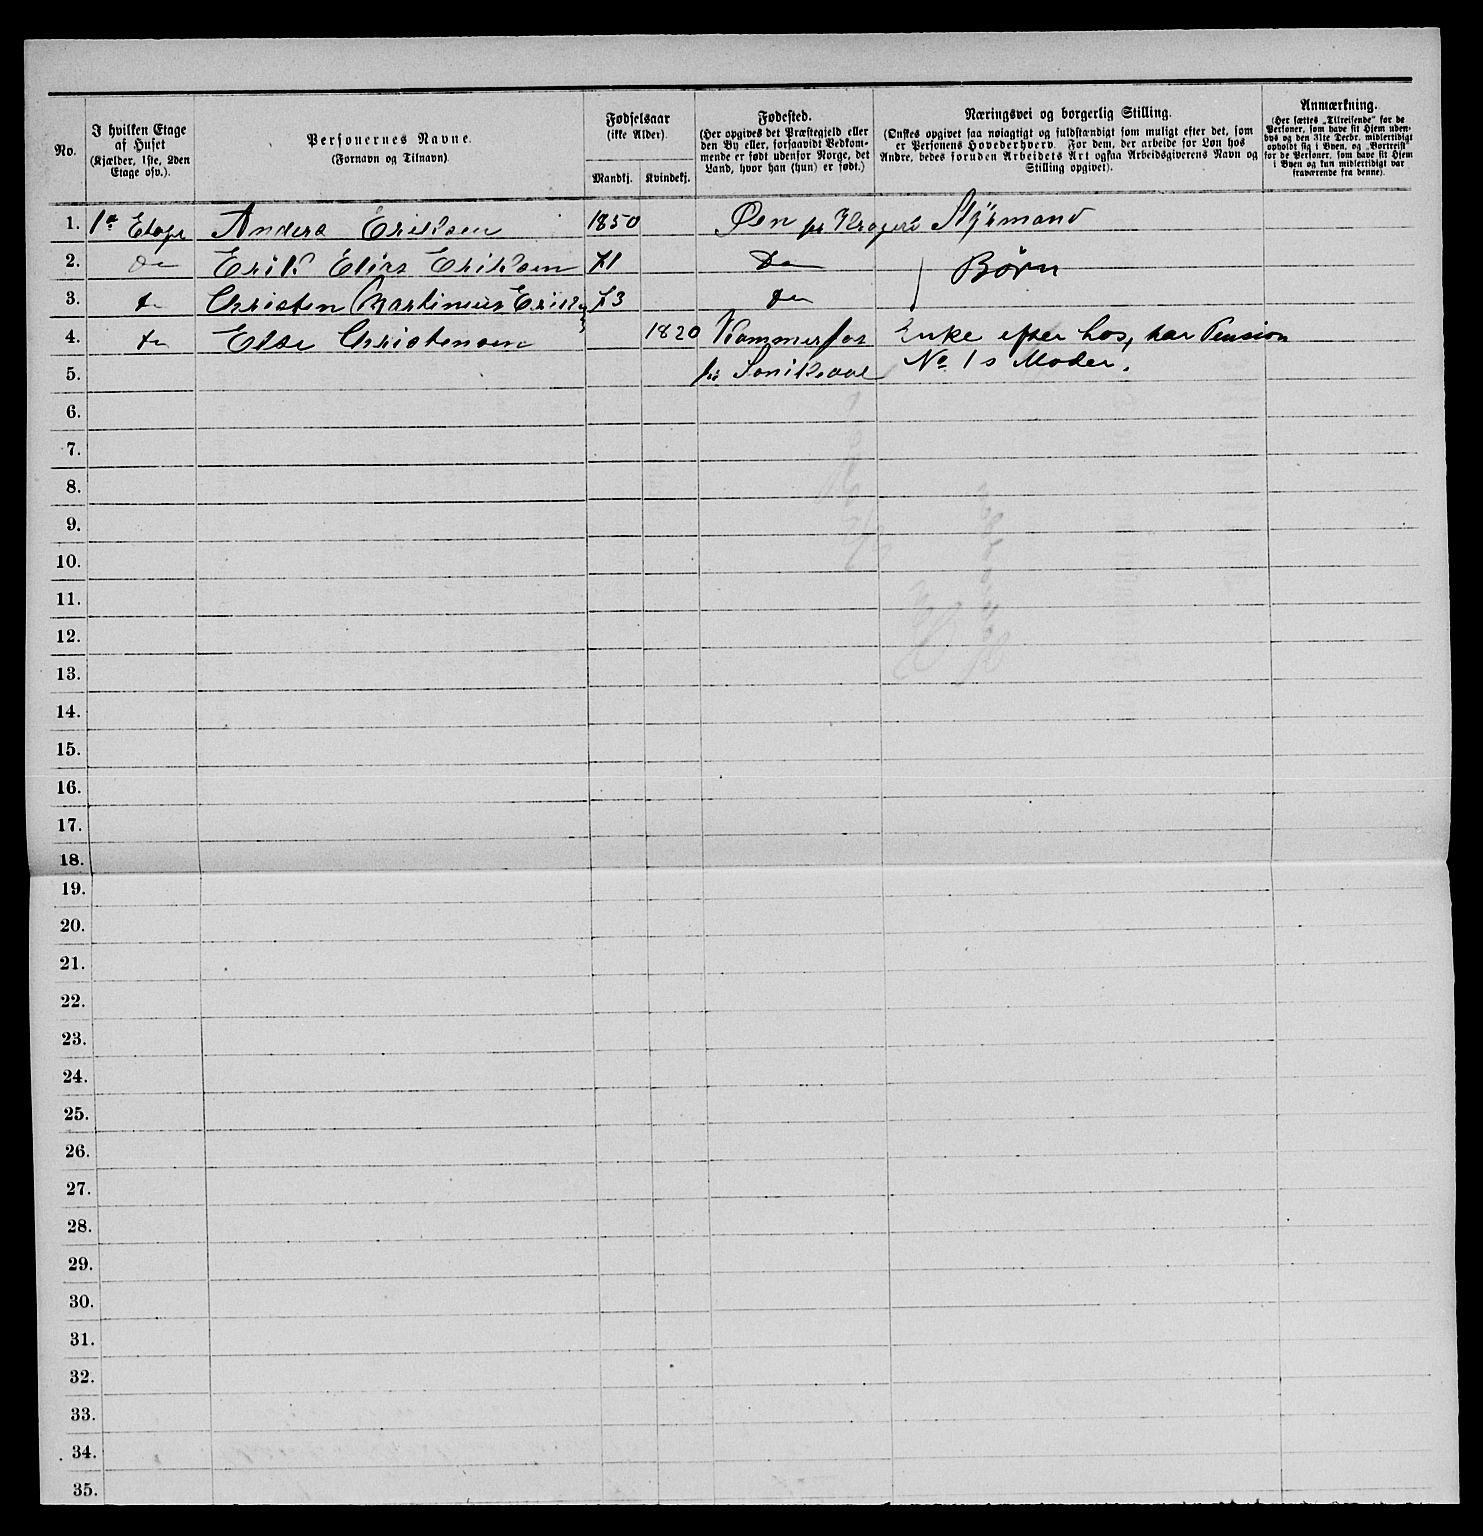 No.
I hvilken Etage
af Huset
(Kjælder, 1ste, 2den
Etage osv.).
Personernes Navne.
(Fornavn og Tilnavn).
Fødselsaar
(ikke Alder).
Mandkj. Kvindekj.
Fødested.
(Her opgives det Præstegjeld eller
den By eller, forsaavidt Vedkom-
mende er født udenfor Norge, det
Land, hvor han (hun) er født.)
Næringsvei og borgerlig Stilling.
(Ønskes opgivet saa nøiagtigt og fuldstændigt som muligt efter det, som
er Personens Hovederhverv. For dem, der arbeide for Løn hos
Andre, bedes foruden Arbeidets Art ogsaa Arbeidsgiverens Navn og
Stilling opgivet).
Anmærkning.
(Her sættes „Tilreisende“ for de
Personer, som have sit Hjem uden-
bys og den 31te Decbr. midlertidigt
opholdt sig i Byen, og „Bortreist“
for de Personer, som have sit Hjem
i Byen og kun midlertidigt var
fraværende fra denne).
1. 1ste Etage Anders Eriksen 1850 Øen pr Kragerö Styrmand
2. Do Erik Elias Eriksen 71 Do Børn
3. Do Christen Martinius Eriksen 73 Do
4. Do Else Christensen 1820 Enke efter Los, har Pension
5. pr No 1s Moder.
6.
7.
8.
9.
10.
11.
12.
13.
14.
15.
16.
17.
18.
19.
20.
21.
22.
23.
24.
25.
26.
27.
28.
29.
30.
31.
32.
33.
34.
35.